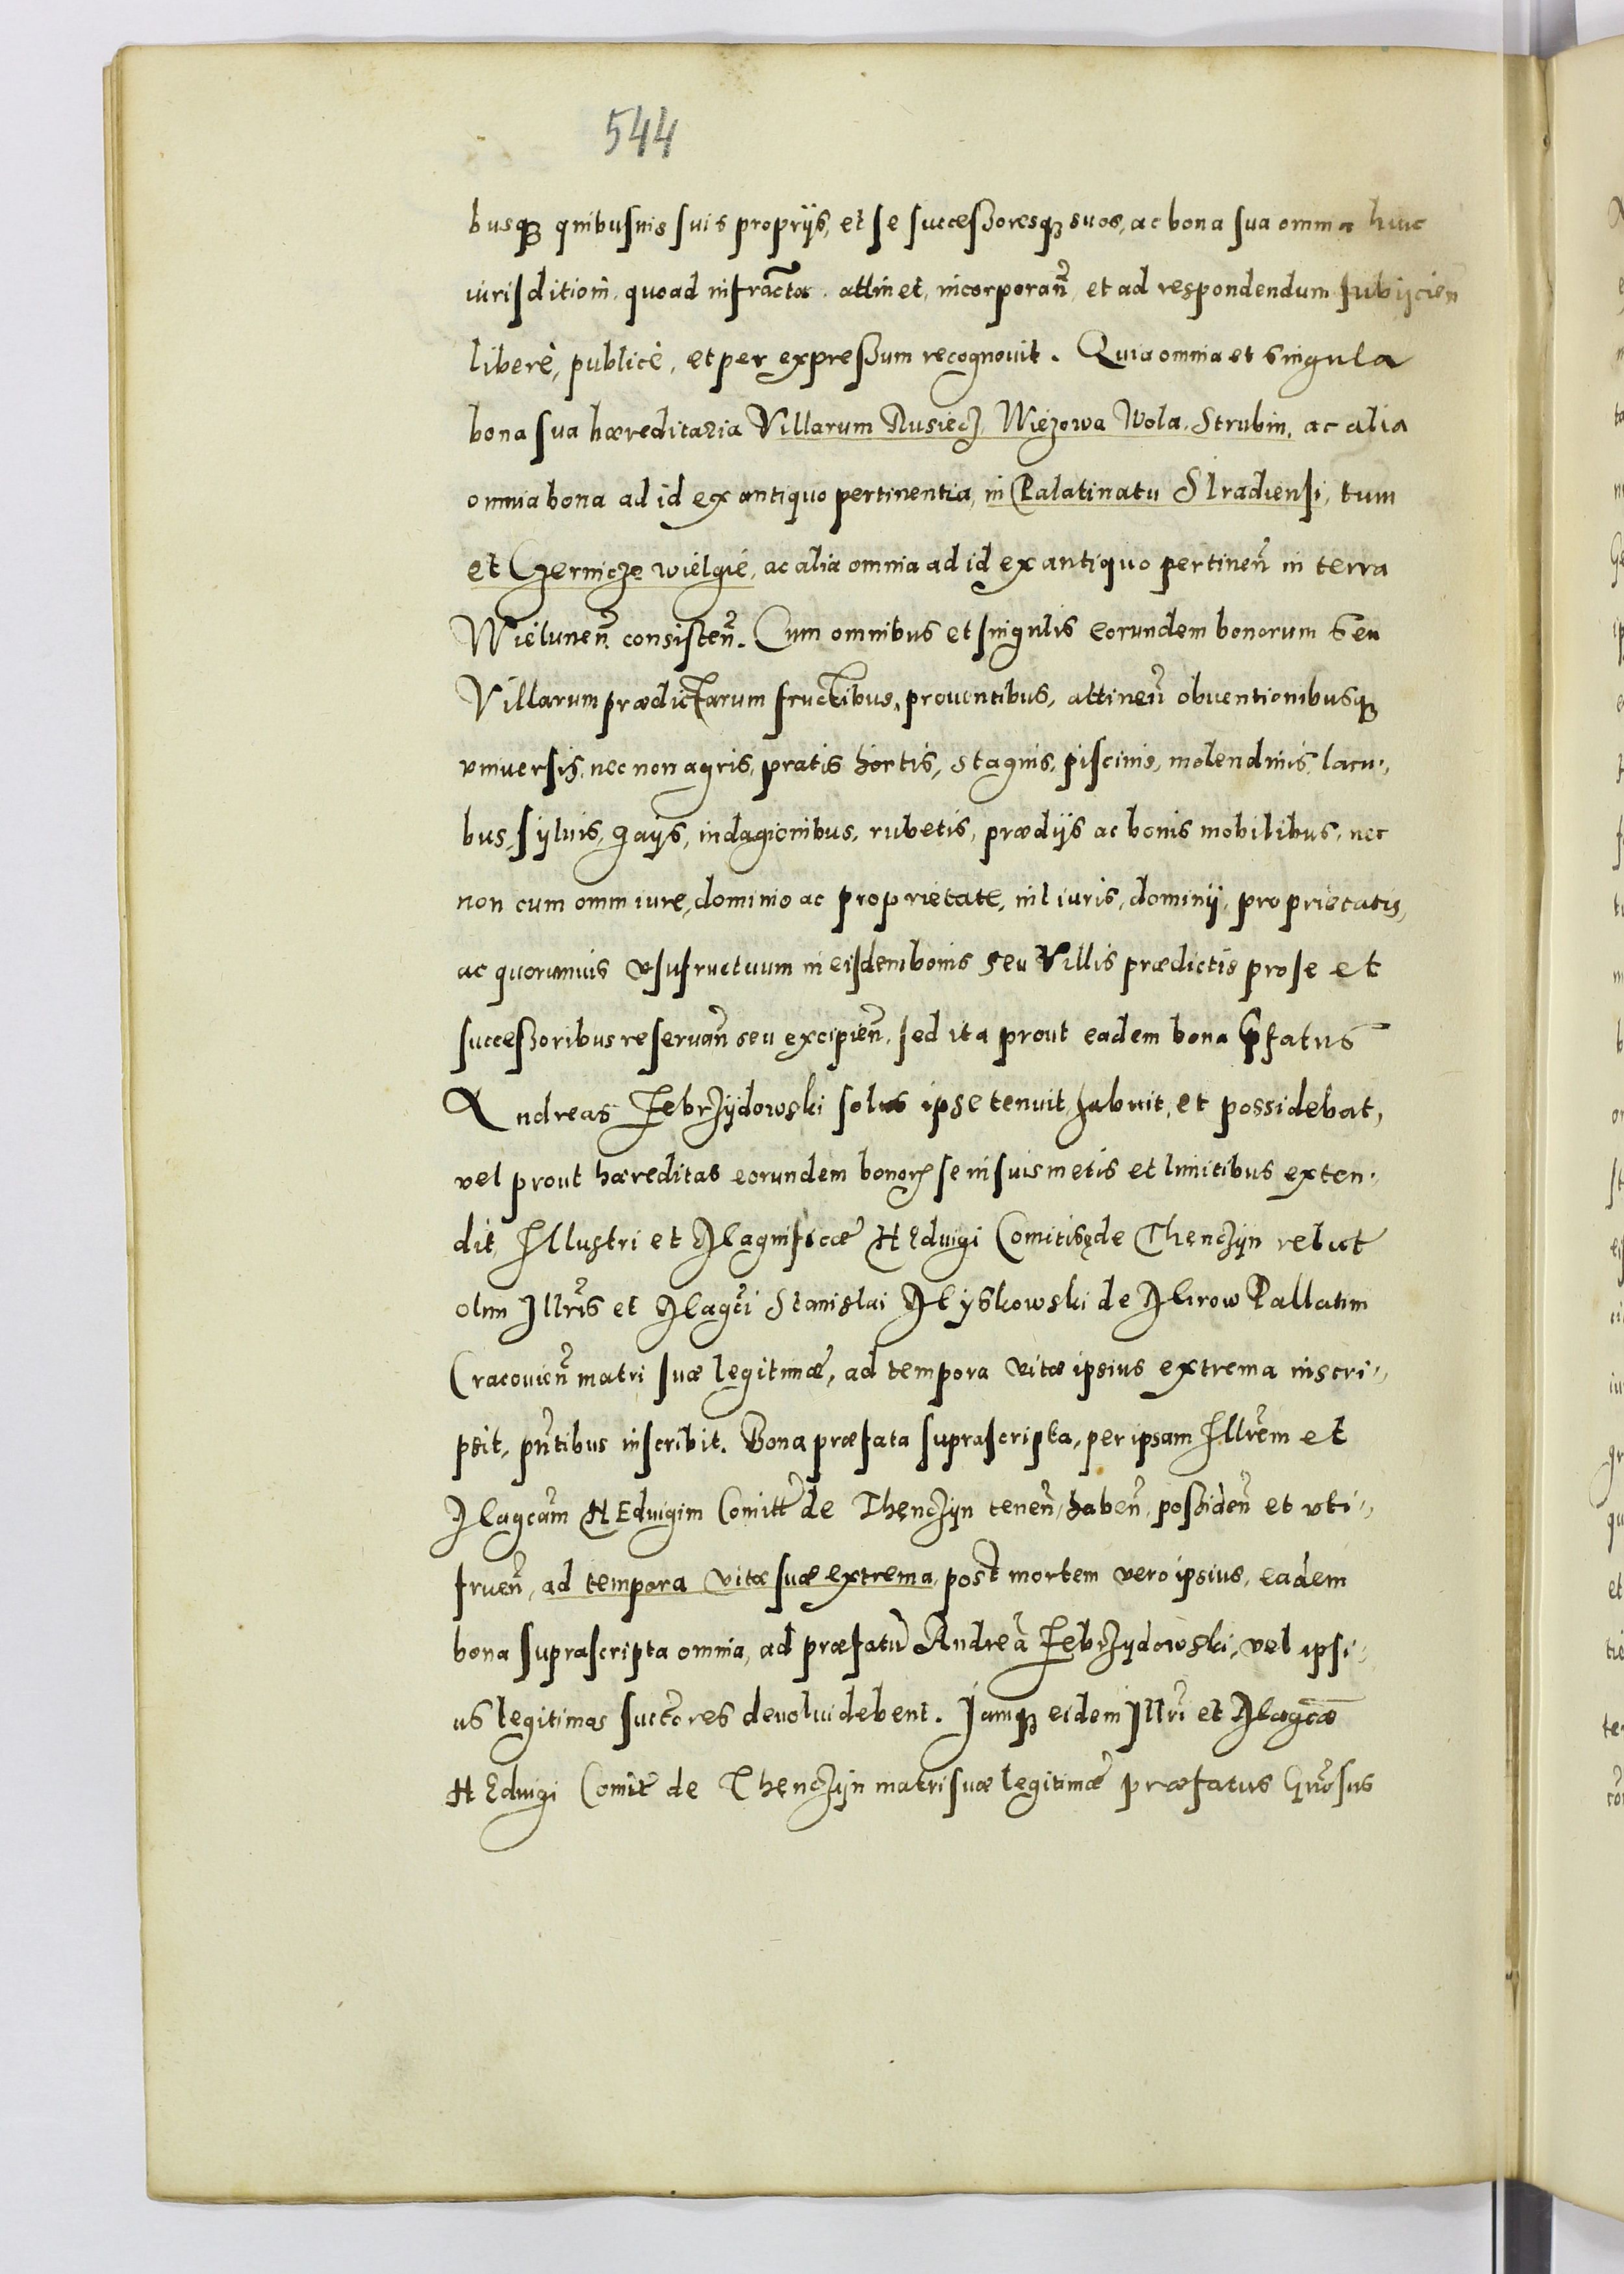 544
busq₃ quibusuis suis proprijs, et se successoresq₃ suos, ac bona sua omnia huic
iurisditioni quoad infractа attinet, incorporañ, et ad respondendum subijcien
liberè, publicè, et per expressum recognouit. Quia omnia et singula
bona sua hæreditaria Villarum Rusiecz, Wiézowa Wola, Strubin, ac alia
omnia bona ad id ex antiquo pertinentia, in Palatinatu Siradiensi, tum
et Czernicze wielgié, ac alia omnia ad id ex antiquo pertineñ in terra
Wieluneñ consisteñ. Cum omnibus et singulis eorundem bonorum seu
Villarum prædictarum fructibus, prouentibus, attineñ obuentionibusq₃
vniuersis, nec non agris, pratis hortis, stagnis, piscinis, molendinis, lacu-,
bus, syluis, gaijs, indagionibus, rubetis, prædijs ac bonis mobilibus, nec
non cum omni iure, dominio ac proprietate, nil iuris, dominij, proprietatis,
ac quorumuis vsufructuum in eisdem bonis seu Villis prædictis pro se et
successoribus reseruañ seu excipieñ, sed ita prout eadem bona p̄fatus
Andreas Zebrzydowski solus ipse tenuit, habuit, et possidebat,
vel prout hæreditas eorundem bonorꝝ se in suis metis et limitibus exten-
dit, Illustri et Magnificæ Heduigi Comitisę de Thenczyn relict
olim Illr̃is et Magc̃i Stanislai Myskowski de Mirow Pallatini
Cracouieñ matri suæ legitimæ, ad tempora vitæ ipsius extrema inscri-,
psit, pñtibus inscribit. Bona præfata suprascripta, per ipsam Illr̃em et
Magcãm Heduigim Comitt̃ de Thenczyn teneñ, habeñ, possideñ et vti-,
frueñ, ad tempora vitæ suæ extrema, post mortem vero ipsius, eadem
bona suprascripta omnia, ad præfatũ Andreã Zebrzydowski, vel ipsi-
us legitimos succ̃ores deuolui debent. Jamq₃ eidem Illr̃i et Magcæ
Heduigi Comit̃ de Thenczyn matri suæ legitimæ præfatus Gñrosus